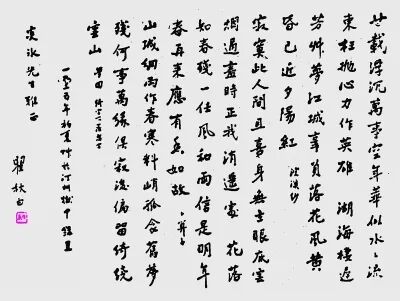 廿載浮沉萬事空年華似水々流
東枉拋心力作英雄 湖海棲遲
芳艸夢江城辜負落花風黃
昏已近夕陽紅 浣溪沙
寂寞此人間且喜身無主眼底雲
烟過盡時正我逍遙處 花落
知春殘一任風和雨信是明年
春再來應有香如故 卜算子
山城細雨作春寒料峭孤衾舊夢
殘何事萬緣俱寂後偏留綺繞
雲山 夢回 綺字下落思字
一九三五年初夏艸於汀州獄中 錄呈
炎冰先生雅正
瞿秋白